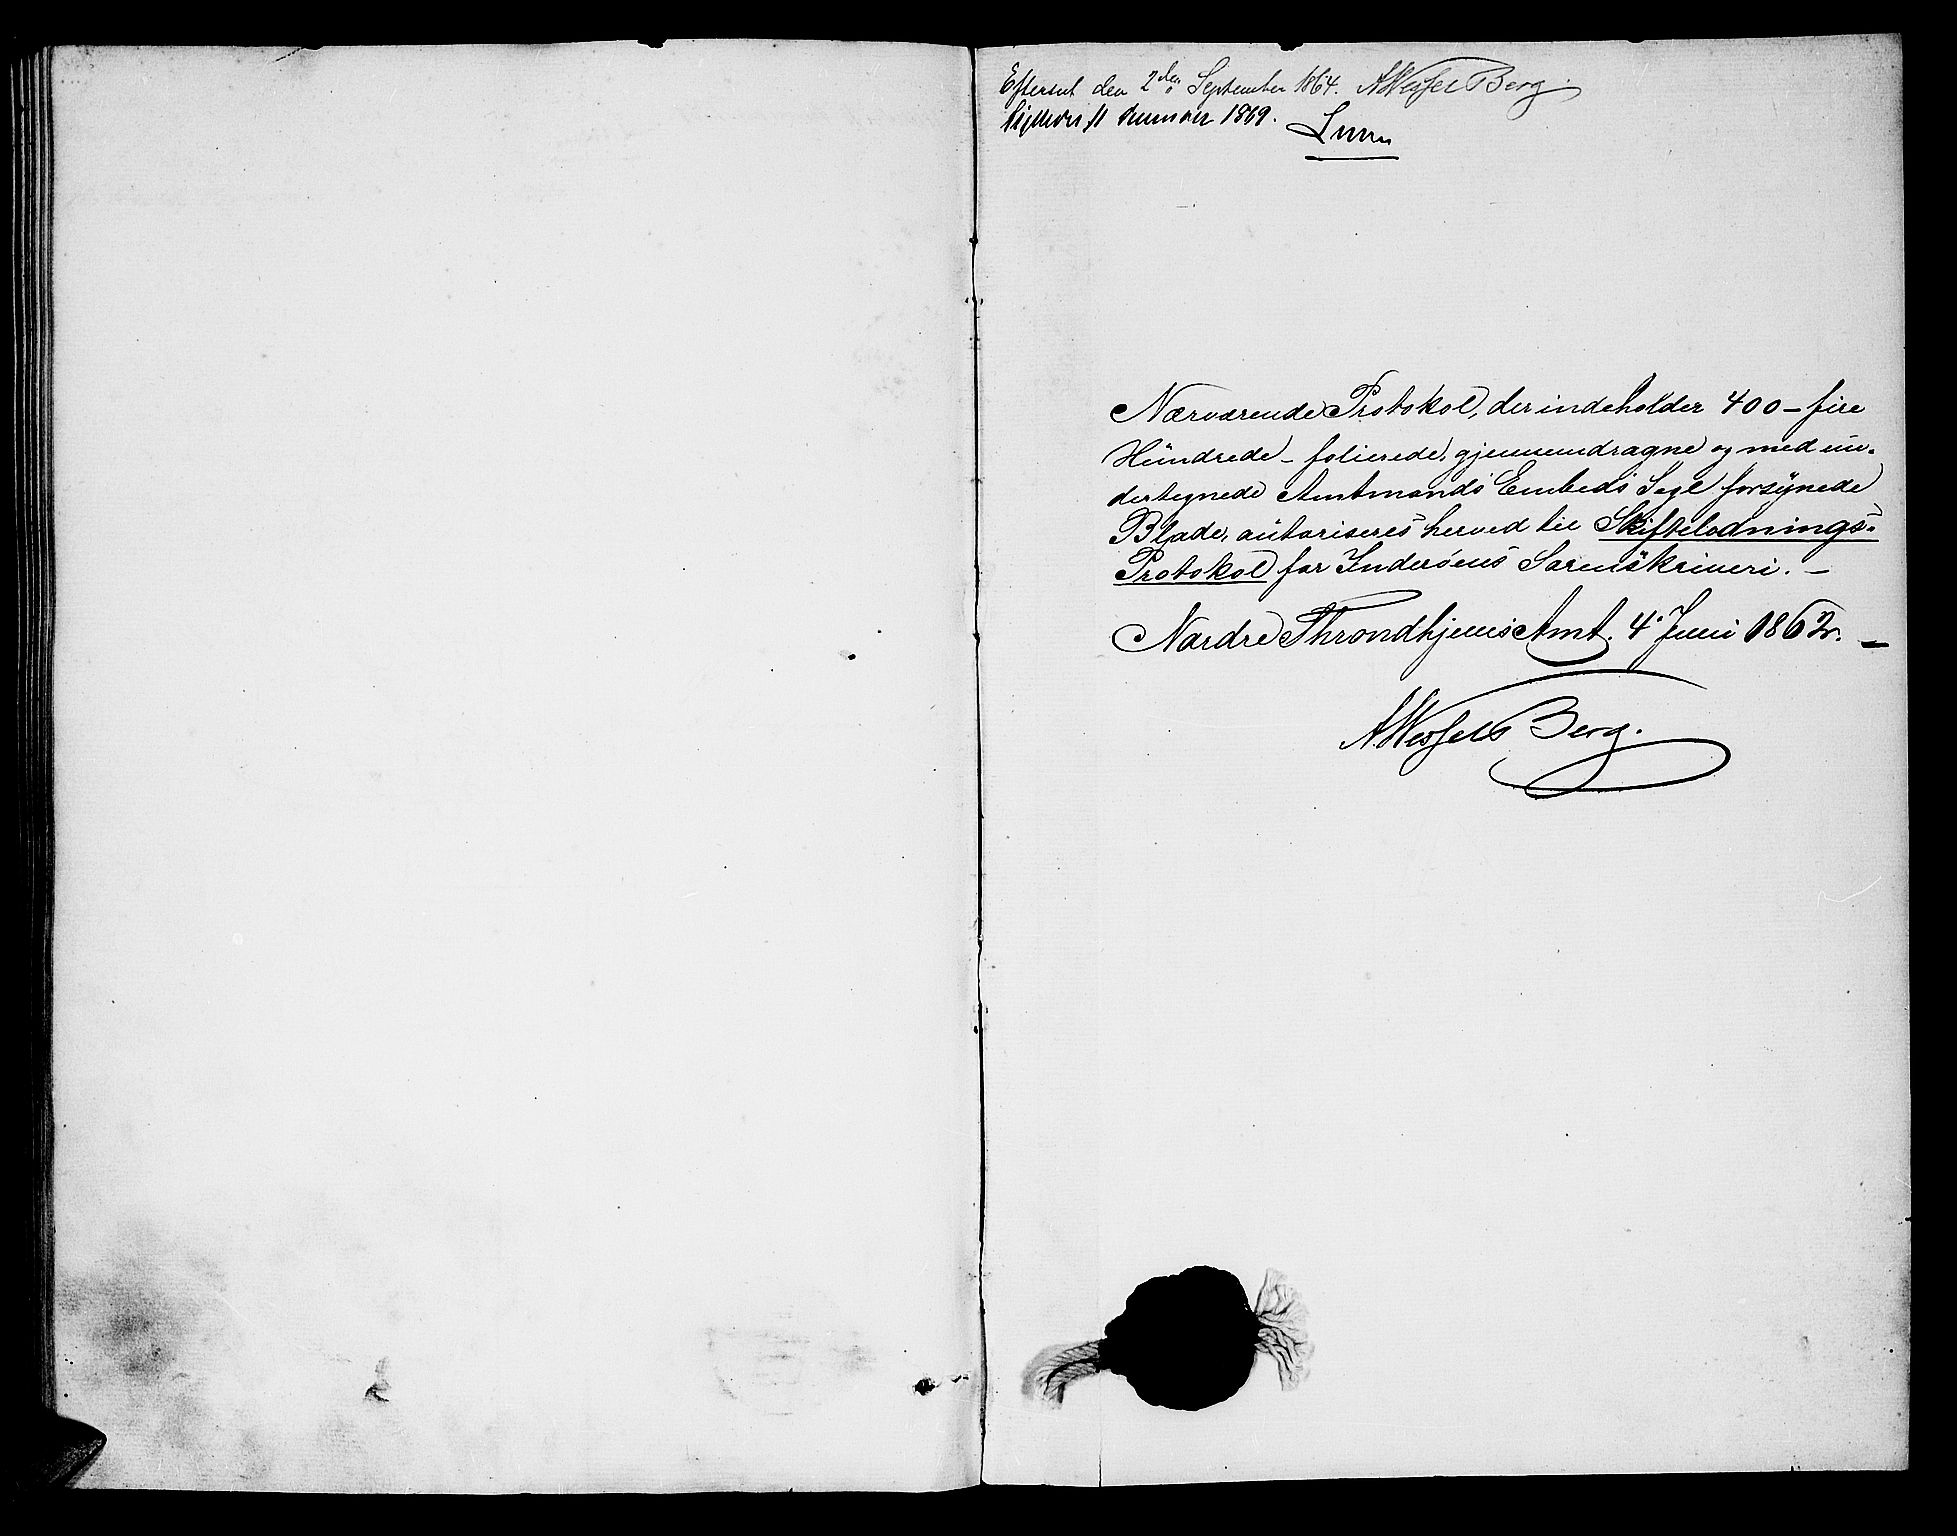 Efterset den 2den September 1864. A Wessel Berg
1869.
Nærværende Protokol, der indeholder 400 – fire
Hundrede – folierede, gjennemdragne og med un-
dertegnede Amtmands Embeds Segl forsynede
Blade, autoriseres herved til Skiftelodnings-
Protokol for Inderøens Sorenskriveri. –
Nordre Throndhjems Amt. 4de Juni 1862. –
A. Wessels Berg.